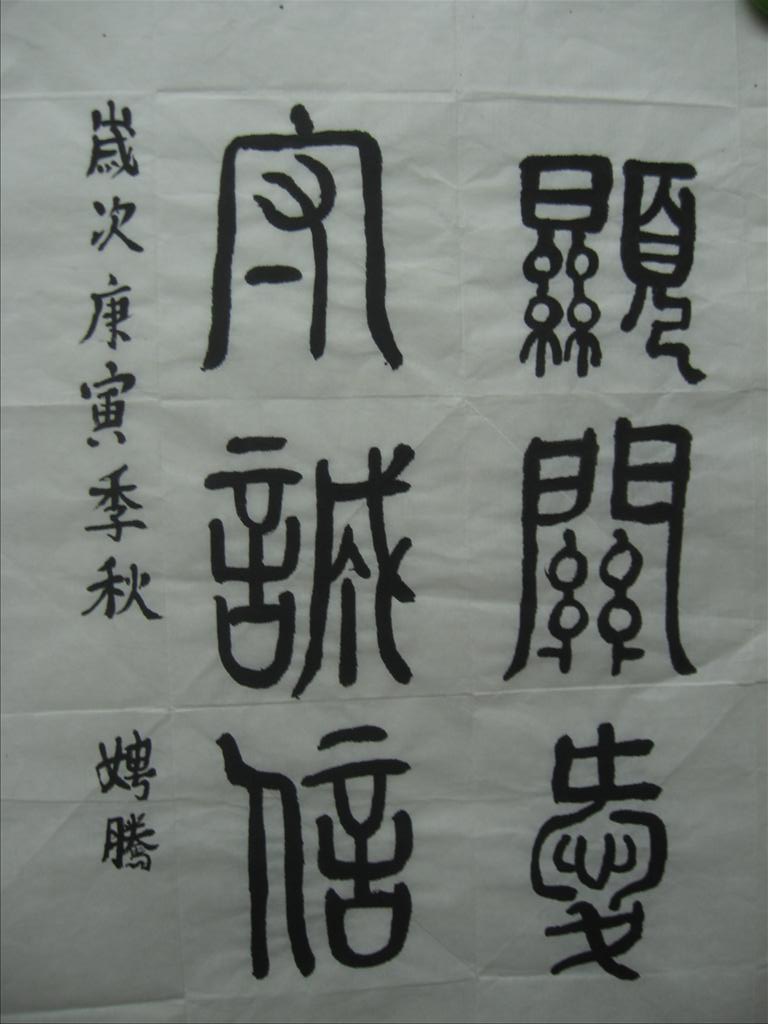 顯關愛
守誠信
歲次庚寅季秋 娉騰